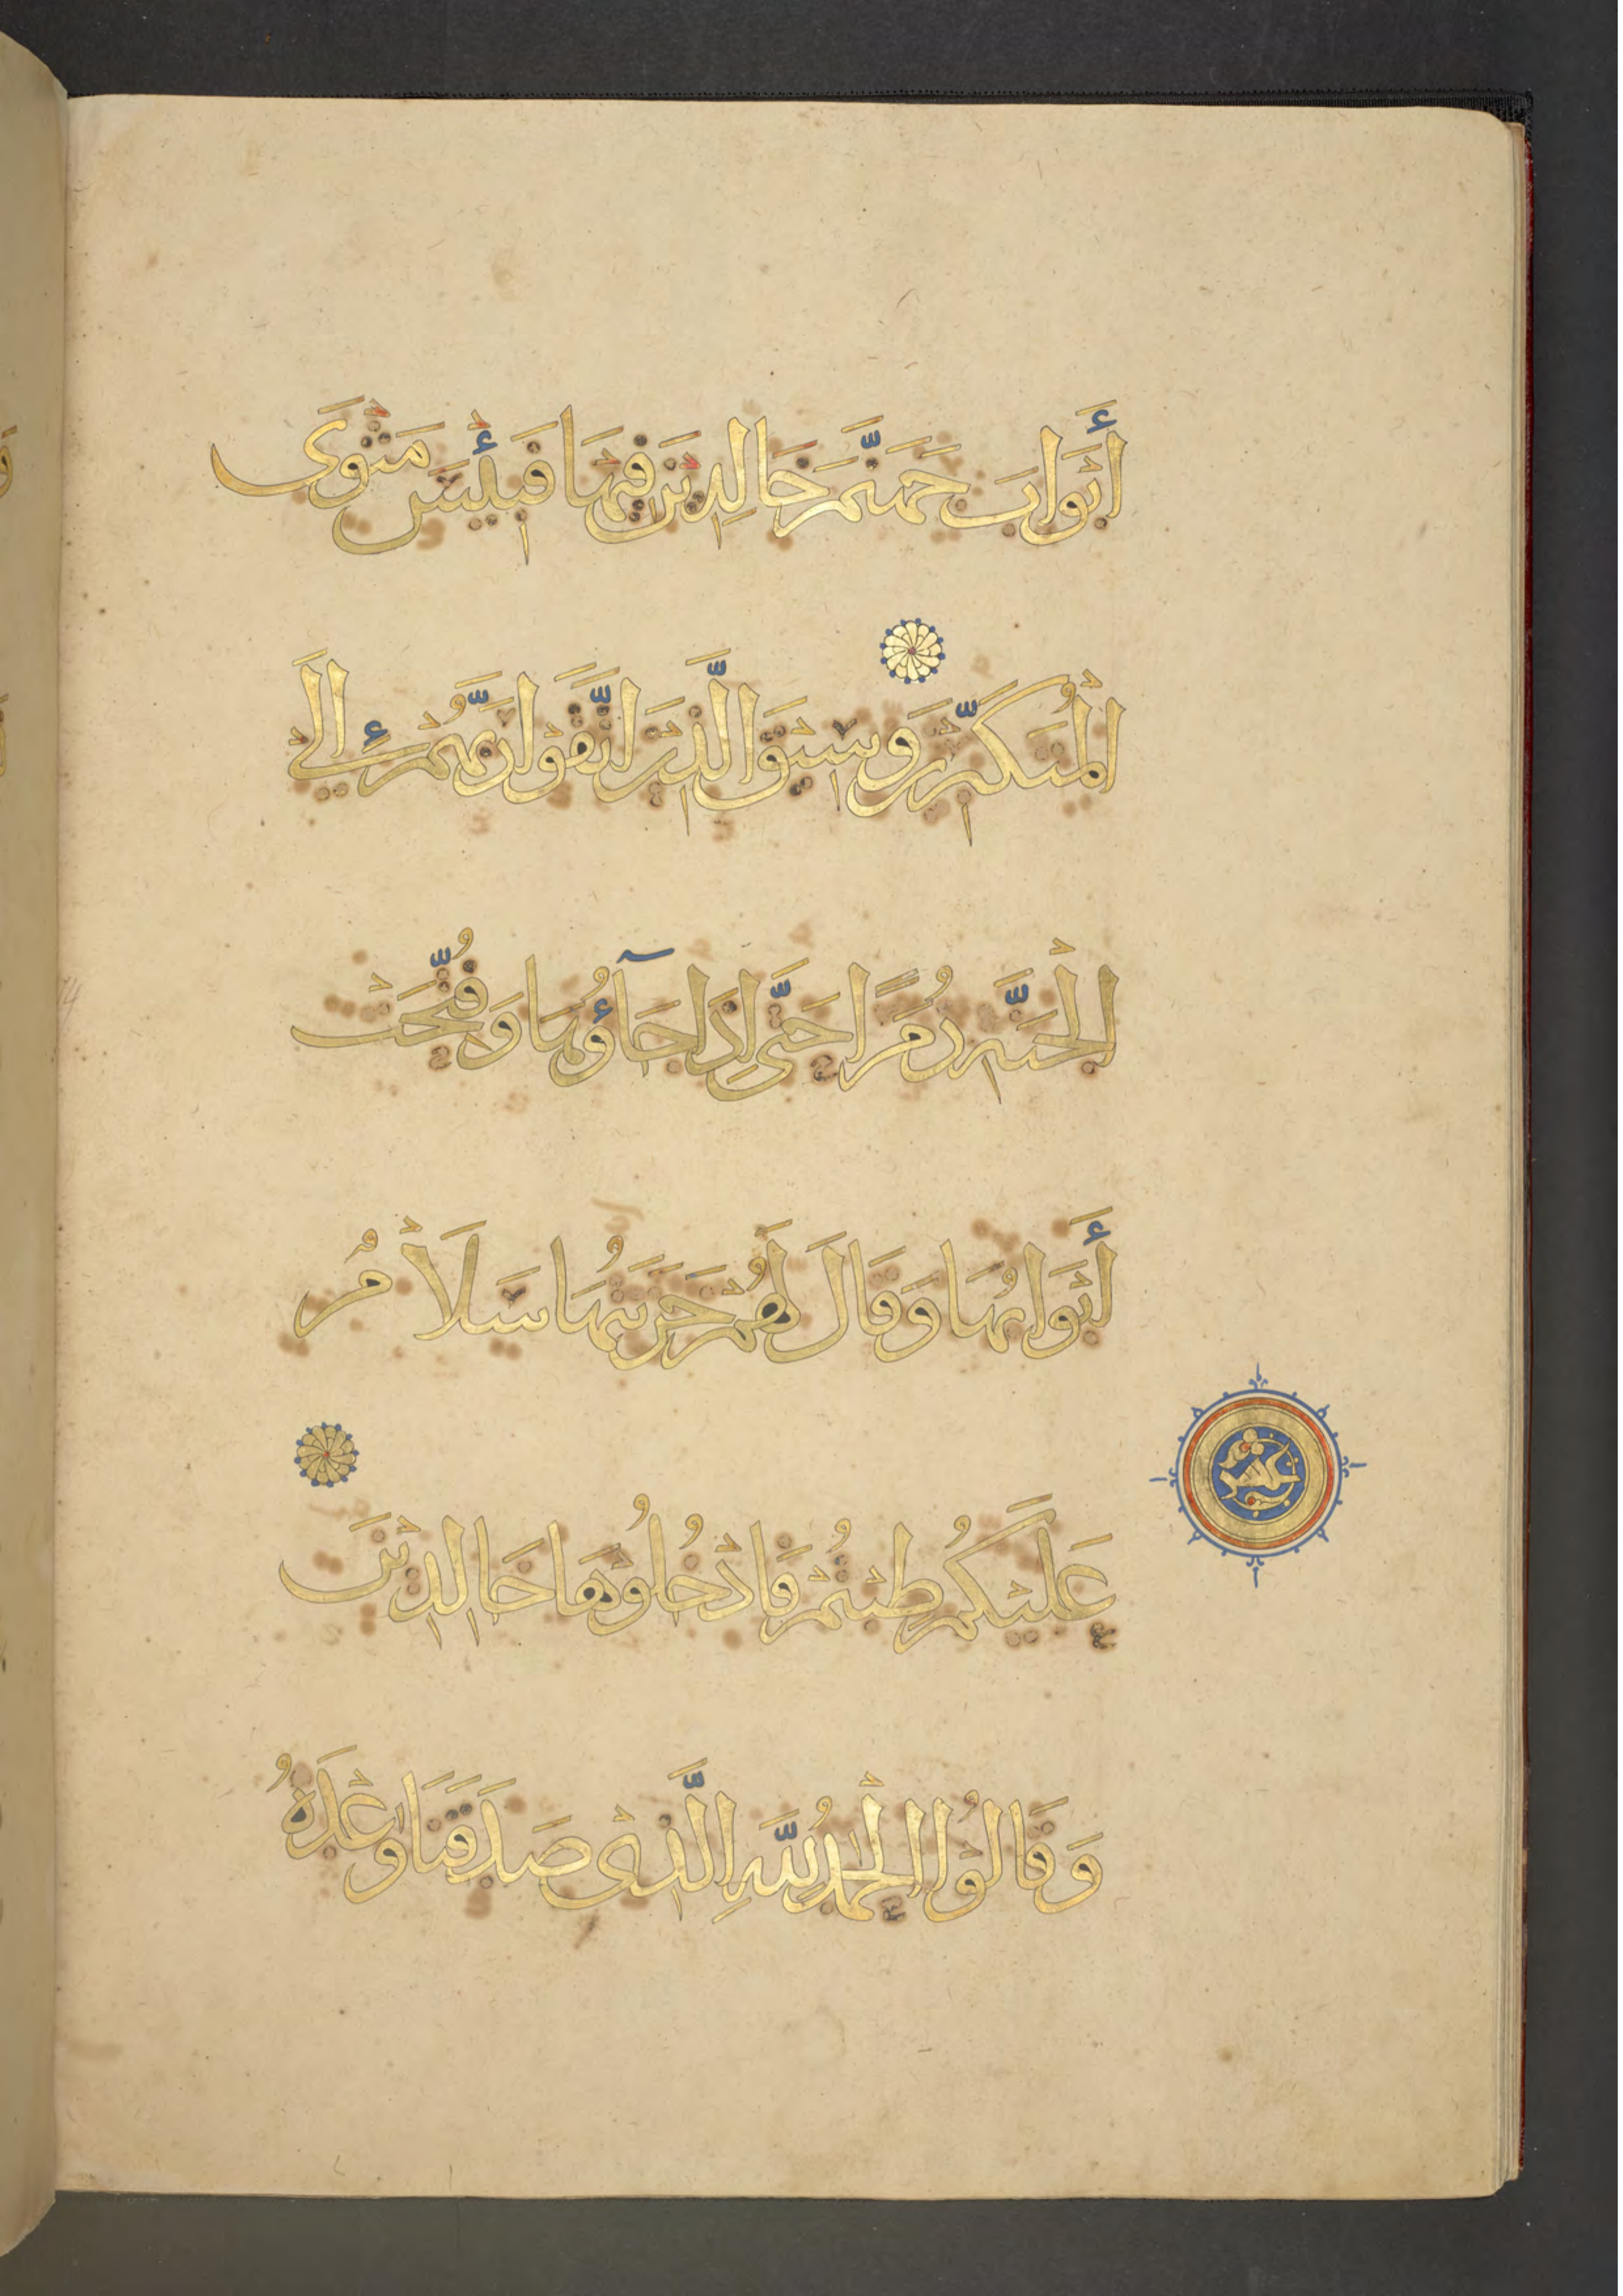 أَبْوَابَ جَهَنَّمَ خَالِدِيْنَ فِيْهَا فَبِئْسَ مَثْوَى
الْمُتَكَبِّرِيْنَ وَسِيْقَ الَّذِيْنَ اتَّقَوْا رَبَّهُمْ إِلَى
الْجَنَّةِ زُمَرًا حَتَّى إِذَا جَآؤُهَا وَفُتِّحَتْ
أَبْوَابُهَا وَقَالَ لَهُمْ خَزَنَتُهَا سَلَامٌ
عَلَيْكُمْ طِبْتُمْ فَادْخُلُوْهَا خَالِدِيْنَ
وَقَالُوْا الْحَمْدُ لِلَّهِ الَّذِيْ صَدَقَنَا وَعْدَهُ